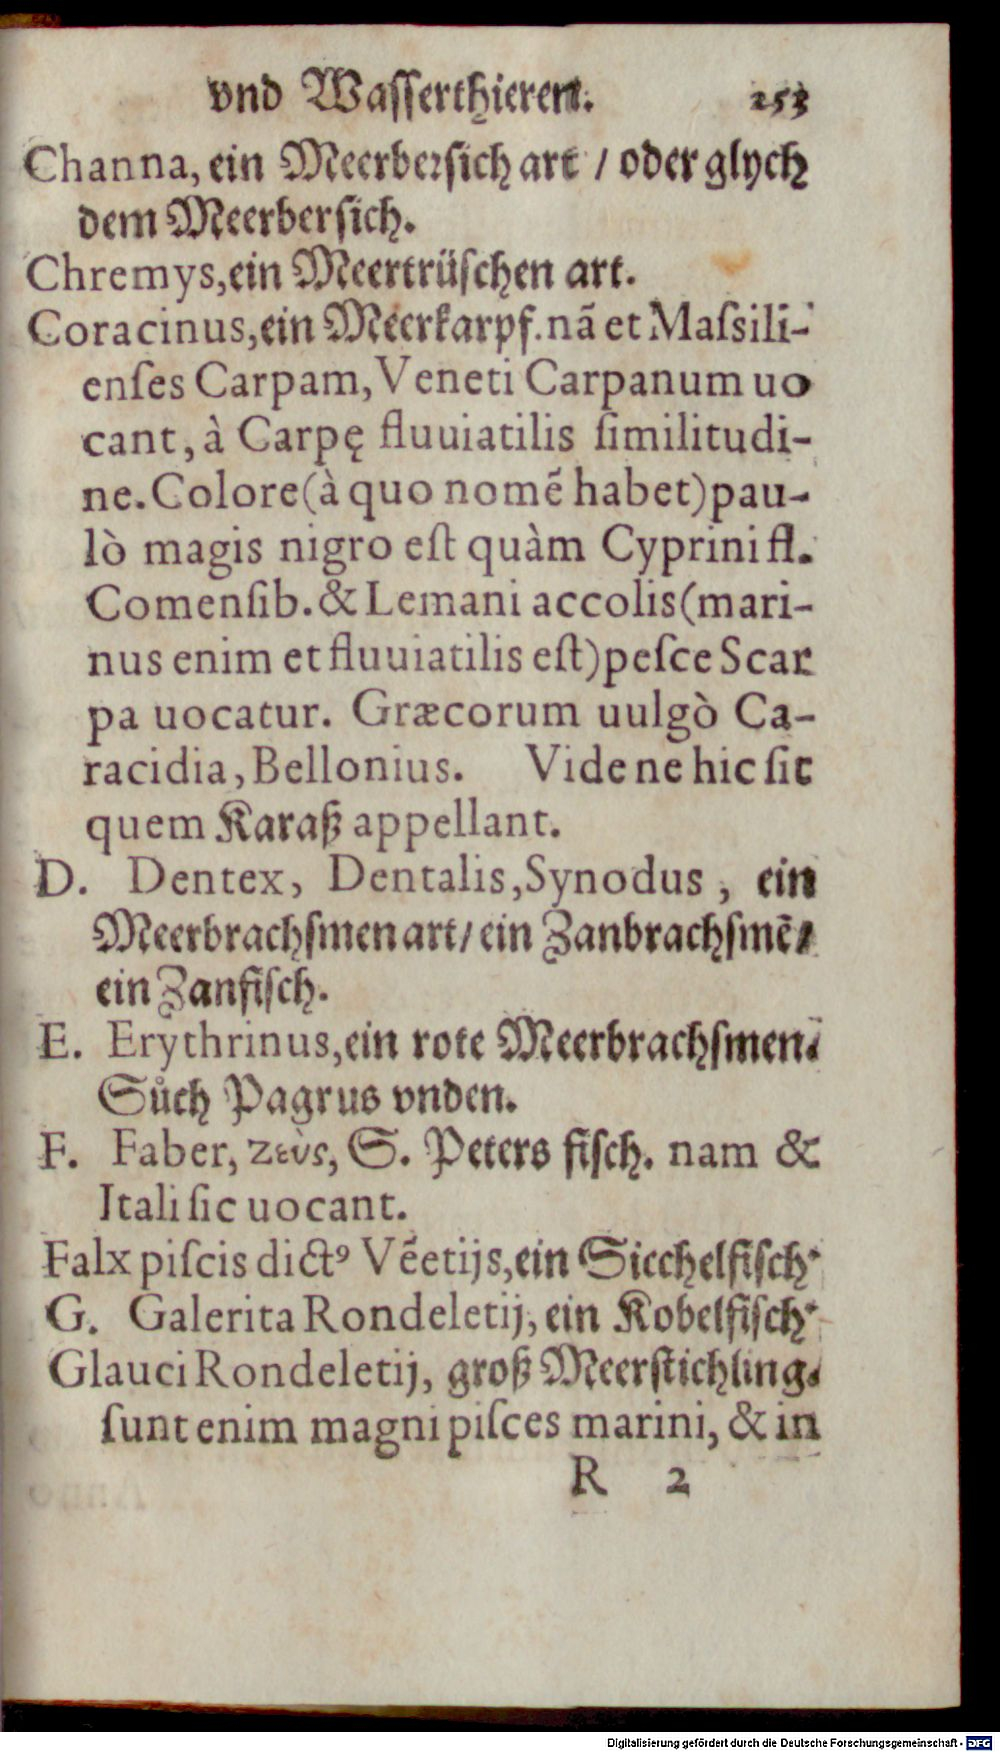 vnd Wasserthieren. 253
Channa, ein Meerbersich art / oder glych
dem Meerbersich.
Chremys, ein Meertrüschen art.
Coracinus, ein Meerkarpf. nã et Maſsili-
enſes Carpam, Veneti Carpanum uo
cant, à Carpę fluuiatilis ſimilitudi-
ne. Colore (à quo nomẽ habet) pau-
lò magis nigro eſt quàm Cyprini fl.
Comenſib. & Lemani accolis (mari-
nus enim et fluuiatilis eſt) peſce Scar
pa uocatur. Græcorum uulgò Ca-
racidia, Bellonius. Vide ne hic ſit
quem Karaß appellant.
D. Dentex, Dentalis, Synodus, ein
Meerbrachſmen art / ein Zanbrachſmẽ /
ein Zanfiſch.
E. Erythrinus, ein rote Meerbrachſmen.
Sůch Pagrus vnden.
F. Faber, ζεὺς, S. Peters fiſch. nam &
Itali ſic uocant.
Falx piſcis dictꝰ Vẽetijs, ein Sicchelfiſch.
G. Galerita Rondeletij, ein Kobelfiſch.
Glauci Rondeletij, groß Meerſtichling.
ſunt enim magni piſces marini, & in
R 2
Digitalisierung gefördert durch die Deutsche Forschungsgemeinschaft - DFG